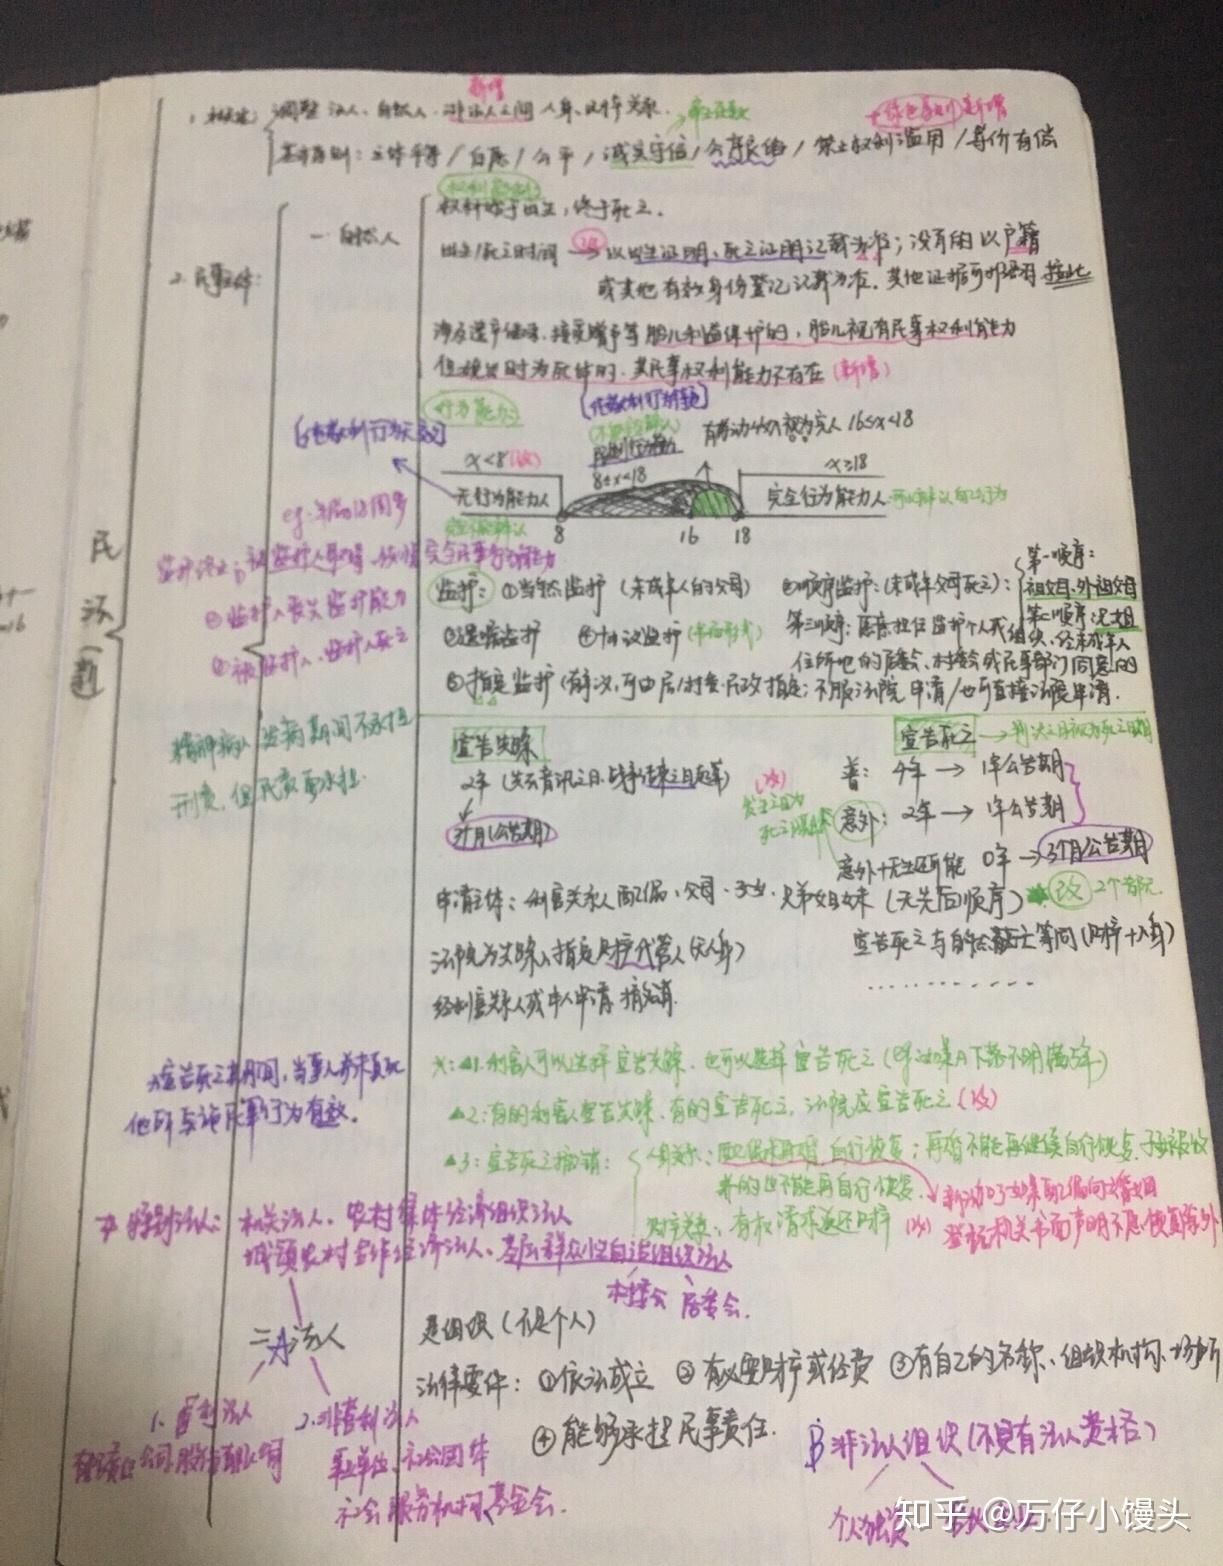 新增
调整 法人、自然人、非法人之间 人身、财产关系.
+绿色原则是新增
基本原则：主体平等/自愿/公平/诚实守信/公序良俗/禁止权利滥用/等价有偿
权利能力
权利始于出生，终于死亡.
一 自然人
出生/死亡时间 → 以出生证明、死亡证明记载为准；没有的以户籍
改
2. 民事主体：
或其他有效身份登记记载为准. 其他证据可推翻
涉及遗产继承、接受赠与等胎儿利益保护的，胎儿视有民事权利能力
但娩出时为死体的，其民事权利能力不存在（新增）
行为能力
有劳动收入视为完人 16≤x<18
x<8（改）
8≤x<18
x≥18
无行为能力人
完全行为能力人
可以辨认自己行为
8 16 18
民法
监护：①当然监护（未成年人的父母）
②顺序监护：（未成年父母死亡）：
第一顺序：
祖父母、外祖父母
第二顺序：兄姐
③遗嘱监护 ④协议监护
第三顺序：愿意担任监护个人或组织、经未成年人
住所地的居委会、村委会或民事部门同意的
⑤指定监护（有争议，可由居/村委、民政指定；不服法院申请/也可直接法院申请.
①监护人丧失监护能力
②被监护人、监护人死亡
精神病人 发病期间不承担
刑责，但民责要承担.
宣告失踪
2年（失去音讯之日、战争结束之日起算）
3个月（公告期）
宣告死亡 → 判决之日视为死亡日期
普：4年 → 1年公告期
意外：2年 → 1年公告期
（改）
意外+无生还可能 0年 → 3个月公告期
申请主体：利害关系人 配偶、父母、子女、兄弟姐妹（无先后顺序）
改
宣告死亡与自然死亡等同（财产+人身）
法院为失踪人指定财产代管人（无人身）
经利害关系人或本人申请 撤销.
☆宣告死亡期间，当事人并未真死
他所实施民事行为有效.
△1. 利害人可以选择宣告失踪、也可以选择宣告死亡（下落不明满5年）
△2：有的利害人宣告失踪、有的宣告死亡，法院应宣告死亡（改）
△3：宣告死亡撤销：
人身关系：配偶未再婚，自行恢复；再婚不能再继续自行恢复. 子女被收
养的也不能再自行恢复.
新增了如果配偶向婚姻
登记机关书面声明不愿恢复除外
财产关系：有权请求返还财产（改）
特别法人：机关法人、农村集体经济组织法人
城镇农村合作经济法人、基层群众性自治组织法人
村委会 居委会.
二 A法人
是组织（不是个人）
法律要件：①依法成立 ②有必要财产或经费 ③有自己的名称、组织机构、场所
④能够承担民事责任.
1. 营利法人
有限责任公司、股份有限公司
2. 非营利法人
事业单位、社会团体
社会服务机构、基金会.
B 非法人组织（不具有法人资格）
个人独资
知乎 @万仔小馒头